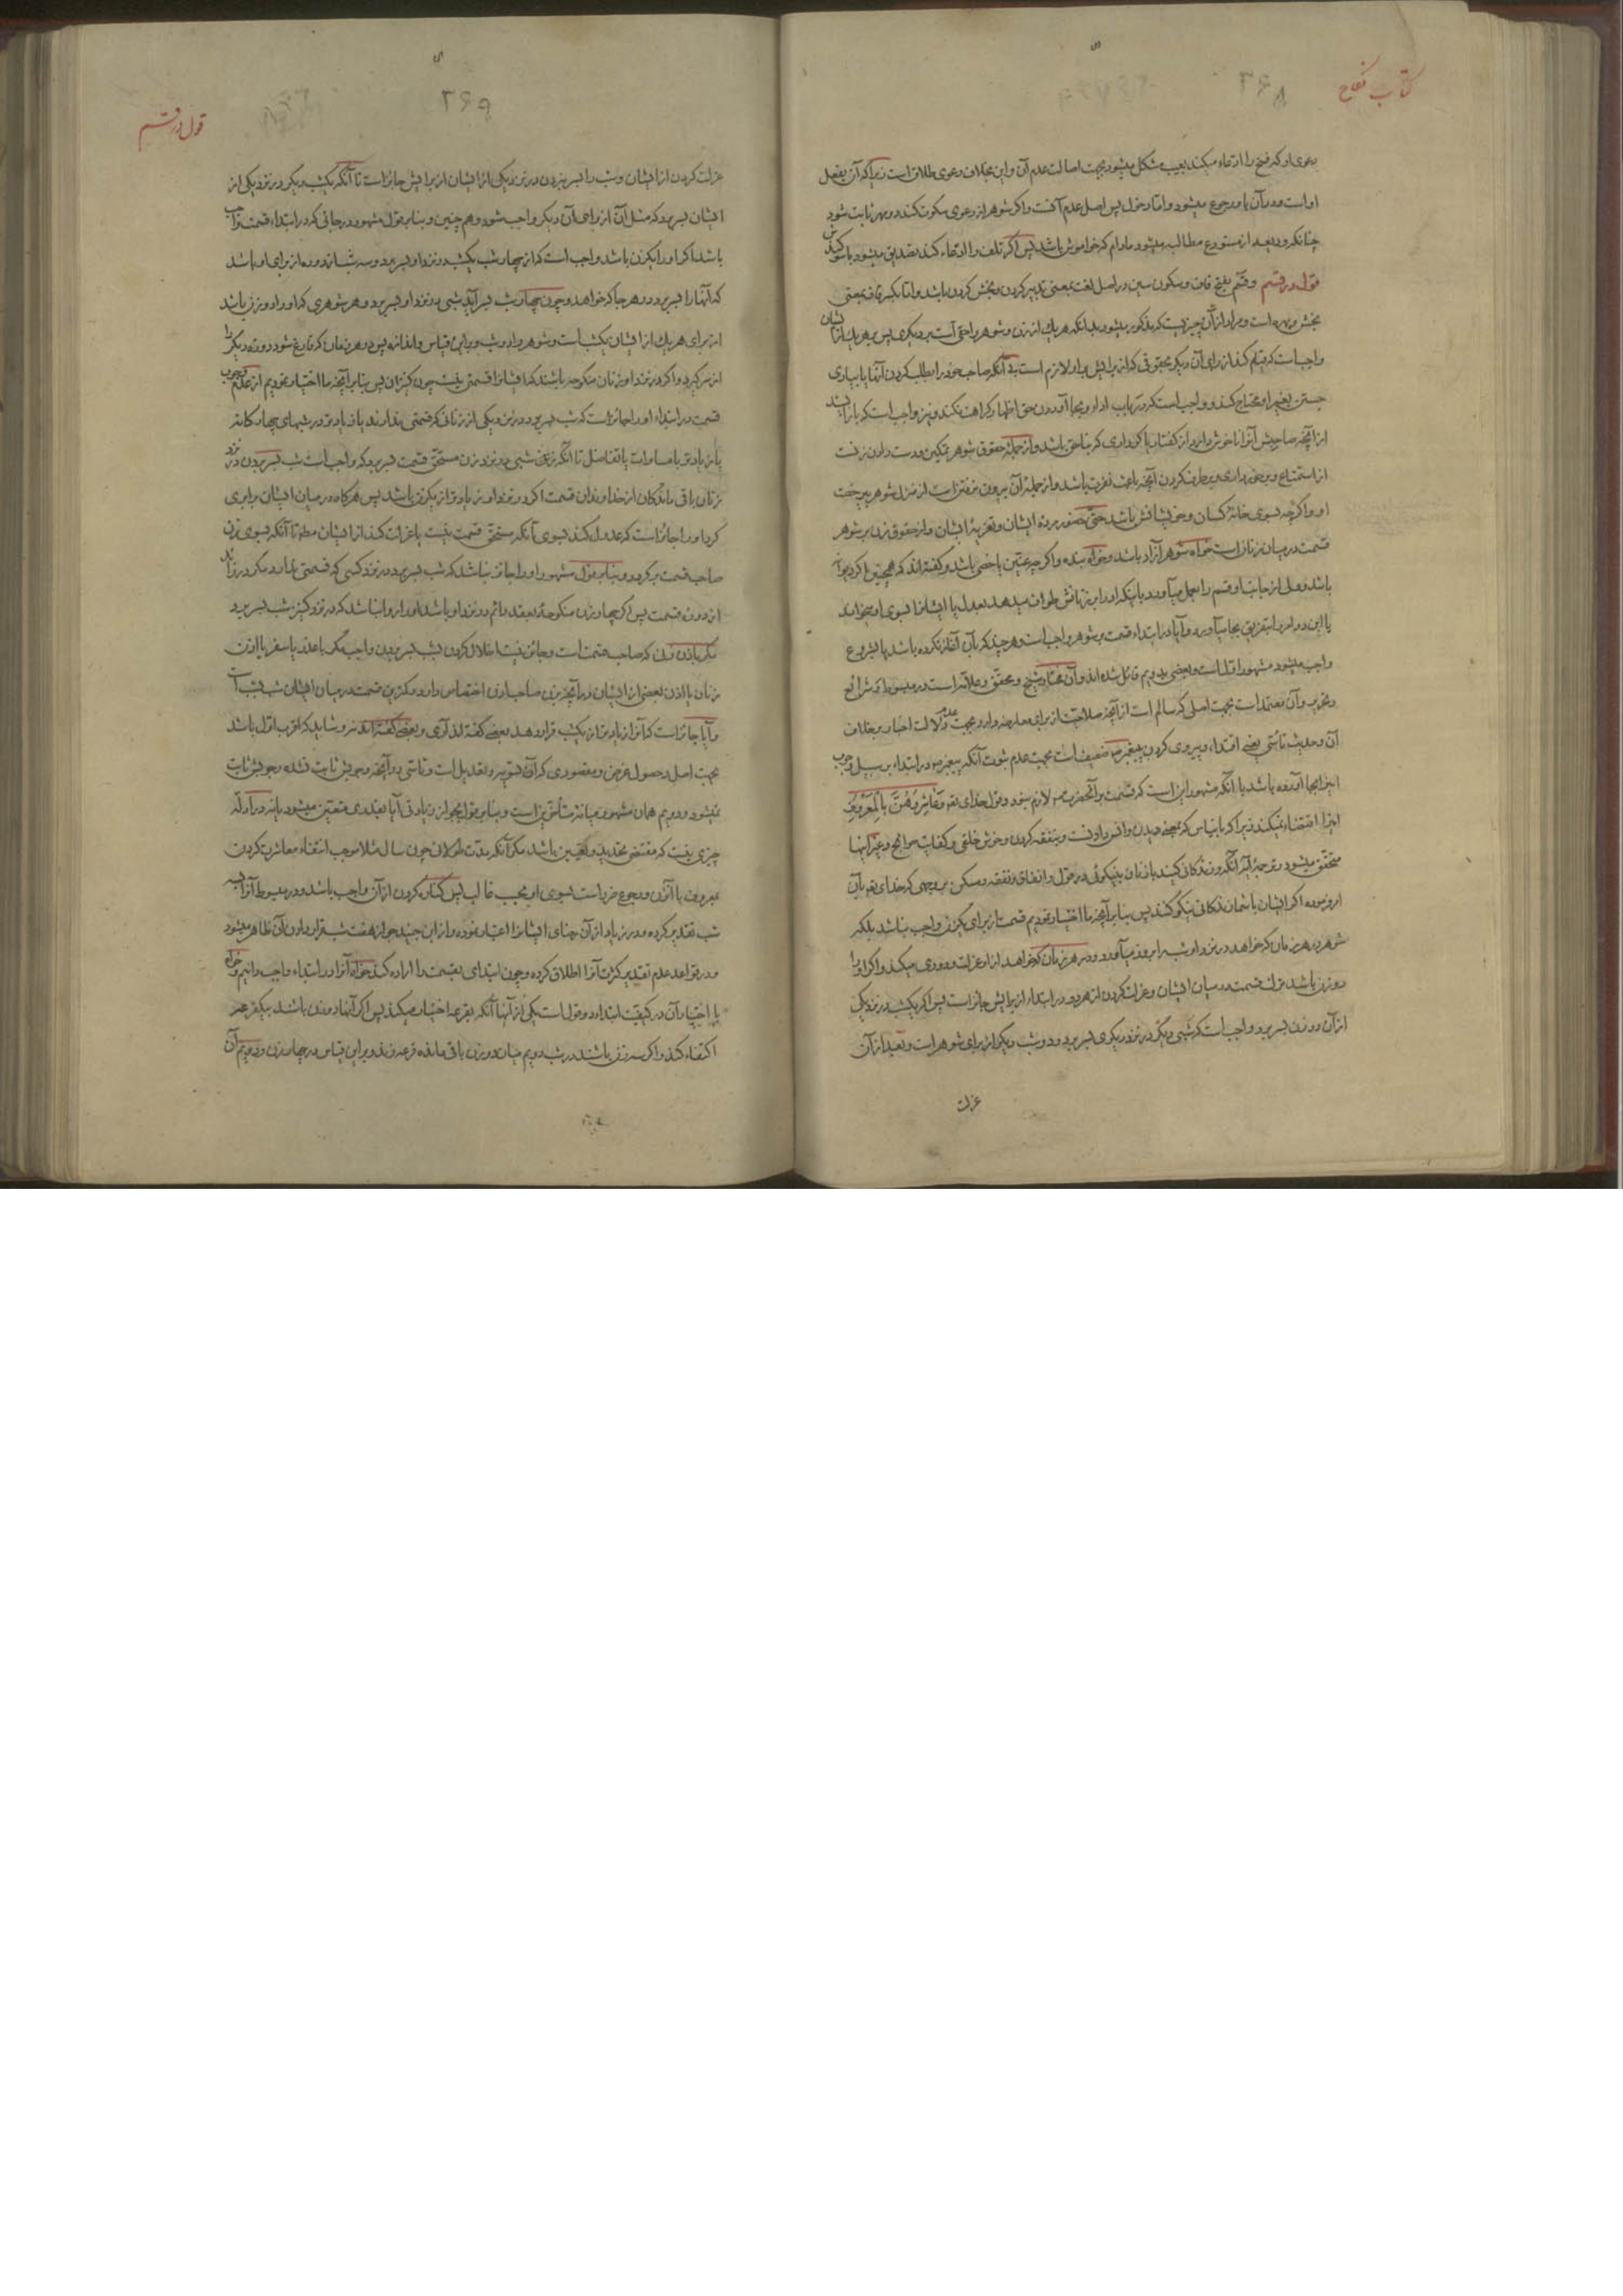 کتاب نکاح
۲۶۸
دعوی او که فسخ را ادعاء میکند بعیب مشکل میشود بجهت اصالت عدم آن و این بخلاف دعوی طلاق است زیرا که آن بفعل
او است و در آن باو رجوع میشود و اما دخول پس اصل عدم آنست و اگر شوهر از دعوی سکوت کند و مهر ثابت شود
چنانکه ودیعه از مستودع مطالبه میشود مادام که خواموش باشد پس اگر تلف را ادعاء کند تصدیق میشود با سوگندش
قول در قسم و قسم بفتح قاف و سکون سین در اصل لغت بمعنی تدبیر کردن و بخش کردن باشد و اما بکسر قاف بمعنی
بخش و بهره است و مراد از آن چیزیست که مذکور میشود بدانکه هر یک از زن و شوهر را حقی است بر دیگری پس بر هر یک از ایشان
واجب است که قیام کند از برای آن دیگر بحقوقی که از برایش بر او لازم است بی آنکه صاحب خود را بطلب کردن آنها یا بیاری
جستن بغیر او محتاج کند و واجب است که در باب اداء و بجا آوردن حق اظهار کراهت نکند و نیز واجب است که باز ایستد
از آنچه صاحبش آنرا ناخوش دارد از گفتار یا کرداری که بناحق باشد و از جملهٔ حقوق شوهر تمکین و دست دادن زنست
از استمتاع و برخورداری و برطرف کردن آنچه باعث نفرت باشد و از جملهٔ آن بیرون نرفتن است از منزل شوهر بی رخصت
او و اگر چه بسوی خانهٔ کسان و خویشانش باشد حتی حضور مردهٔ ایشان و تعزیهٔ ایشان و از حقوق زن بر شوهر
قسمت در میان زنان است خواه شوهر آزاد باشد و خواه بنده و اگر چه عنین یا خصی باشد و گفته‌اند که همچنین اگر دیوانه
باشد و ولی از جانب او قسم را بعمل میآورد باینکه او را بر زنانش طواف میدهد بعدل یا ایشانرا بسوی او میخواند
یا این دو امر را بتفریق بجا میآورد و آیا در ابتداء قسمت بر شوهر واجب است و هر چند که بآن آغاز نکرده باشد یا بشروع
واجب میشود مشهور اول است و بعضی بدویم قائل شده‌اند و آن مختار شیخ و محقق و علامه است در مبسوط و شرایع
و تحریر و آن معتمد است بجهت اصلی که سالم است از آنچه صلاحیت از برای معارضه دارد و بجهت عدم دلالت اخبار بر خلاف
آن و حدیث تأسی یعنی اقتداء و پیروی کردن پیغمبر ص ضعیف است بجهت عدم ثبوت آنکه پیغمبر ص در ابتداء بر سبیل وجوب
اینرا بجا آورده باشد با آنکه مشهور این است که قسمت بر آنحضرت ص لازم نبود و قول خدای تعالی وَعَاشِرُوهُنَّ بِالْمَعْرُوفِ
اینرا اقتضاء نمیکند زیرا که باینیاس که بمعنی دیدن و انس دادنست و بنفقه کردن و خوش خلقی و کفایت حوائج و غیر اینها
متحقق میشود و ترجمهٔ آیه آنکه و زندگانی کنید با زنان بنیکوئی در قول و انفاق و نفقه و مسکن بر وجهی که خدای تعالی بآن
امر فرموده اگر ایشان با شما زندگانی نیکو کنند پس بنابر آنچه ما اختیار نمودیم قسمت از برای یکزن واجب نباشد بلکه
شوهر در هر زمان که خواهد در نزد او شب را بروز میآورد و در هر زمان که خواهد از او عزلت و دوری میکند و اگر او را
دو زن باشد ترک قسمت در میان ایشان و عزلت کردن از هر دو در ابتداء از برایش جایز است پس اگر یکشب در نزد یکی
از آن دو زن بسر برد واجب است که شبی دیگر در نزد دیگری بسر برد و دو شب دیگر از برای شوهر است و بعد از آن
عزلت
قول در قسم
۲۶۹
عزلت کردن از ایشان و شب را بسر نبردن در نزد یکی از ایشان از برایش جایز است تا آنکه یکشب دیگر در نزد یکی از
ایشان بسر برد که مثل آن از برای آن دیگر واجب شود و هم چنین و بنابر قول مشهور در جائی که در ابتداء قسمت واجب
باشد اگر او را یکزن باشد واجب است که از چهار شب یکشب در نزد او بسر برد و سه شبانه روز از برای او باشد
که آنها را بسر برد در هر جا که خواهد و چون چهار شب بسر آید شبی در نزد او بسر برد و هر شوهری که او را دو زن باشد
از برای هر یک از ایشان یکشب است و شوهر را دو شب و بر این قیاس و اندازه پس در هر زمان که فارغ شود دوره دیگر را
از سر گیرد و اگر در نزد او زنان منکوحه باشند که ایشانرا قسمتی نیست چون کنیزان پس بنابر آنچه ما اختیار نمودیم از عدم وجوب
قسمت در ابتداء او را جائز است که شب بسر برد در نزد یکی از زنانی که قسمتی ندارند یا زیادتر در شبهای چهارگانه
یا زیادتر با مساوات یا تفاضل تا آنکه نزد شبی در نزد زن مستحق قسمت بسر برد که واجب است شب بسر بردن در نزد
زنان باقی ماندگان از خداوندان قسمت اگر در نزد او زیادتر از یکزن باشد پس هر گاه در میان ایشان برابری
کرد او را جائز است که عدول کند بسوی آنکه مستحق قسمت نیست یا عزلت کند از ایشان مطلقا تا آنکه بسوی زن
صاحب قسمت برگردد و بنابر قول مشهور او را جائز نباشد که شب بسر برد در نزد کسی که قسمتی ندارد مگر در زائد
از دور قسمت پس اگر چهار زن منکوحهٔ بعقد دائم در نزد او باشد او را روا نباشد که در نزد کنیز شب بسر برد
مگر باذن زنی که صاحب قسمت است و جائز نیست اخلال کردن بشب بسر بردن واجب مگر با عذر یا سفر یا اذن
زنان یا اذن بعضی از ایشان در آنچه بزن صاحب اذن اختصاص دارد و کمترین قسمت در میان ایشان شب بشب است
و آیا جائز است که آنرا زیادتر از یکشب قرار دهد بعضی گفته‌اند آری و بعضی گفته‌اند نه و شاید که اقرب اول باشد
بجهت اصل و حصول غرض و مقصودی که آن تسویه و تعدیل است و تأسی در آنچه وجوبش ثابت نشده وجوبش ثابت
نمیشود و دویم همان مشهور میانه متأخرین است و بنابر قول بجواز زیادتی آیا بقدری متعین میشود یا نه و در ادله
چیزی نیست که مقتضی تحدید و تعیین باشد مگر آنکه مدت طولانی چون سال مثلا موجب انتفاء معاشرت کردن
بمعروف با آنزن و رجوع ضرر است بسوی او بحسب غالب پس کناره کردن از آن واجب باشد و در مبسوط آنرا بسه
شب تقدیر کرده و در زیاد از آن رضای ایشانرا اعتبار نموده و از ابن جنید جواز هفت شب قرار دادن آن ظاهر میشود
و در قواعد عدم تقدیر کثرت آنرا اطلاق کرده و چون ابتدای بقسمت را اراده کند خواه آنرا در ابتداء واجب دانیم و خواه
با اختیار آن در کیفیت ابتداء دو قول است یکی از آنها آنکه بقرعه اختیار میکند پس اگر آنها دو زن باشند بیکقرعه
اکتفاء کند و اگر سه زن باشند در شب دویم میان دو زن باقی مانده قرعه زند و بر این قیاس در چهار زن و دویم آن